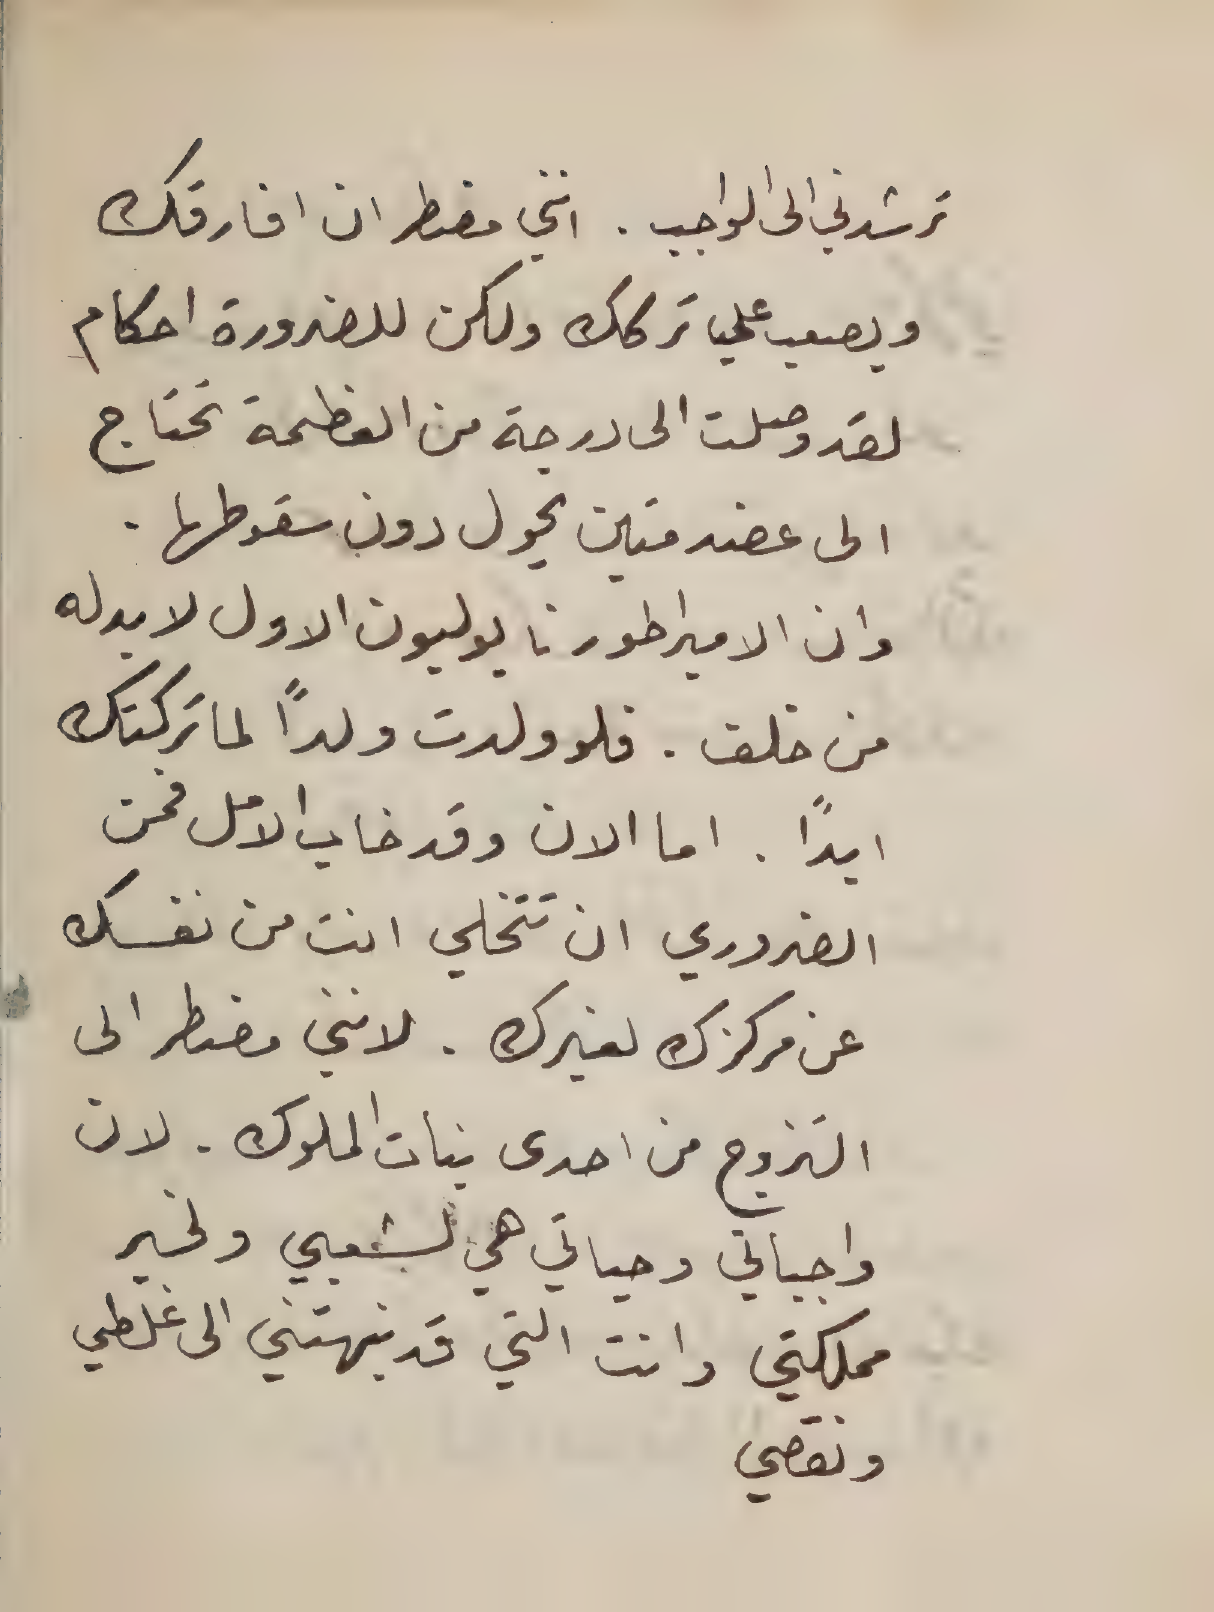 ترشدني الى الواجب . انني مضطر ان افارقك
ويصعب علي تركك ولكن للضرورة احكام
لقد وصلت الى درجة من العظمة تحتاج
الى عضد متين يحول دون سقوطها .
وان الامبراطور نابوليون الاول لا بد له
من خلف . فلو ولدت ولدًا لما تركتك
ابدًا . اما الان وقد خاب الامل فمن
الضروري ان تتخلي انت من نفسك
عن مركزك لغيرك . لانني مضطر الى
التزوج من احدى بنات الملوك . لان
واجباتي وحياتي هي لشعبي ولخير
مملكتي وانت التي قد نبهتني الى غلطي
ونقصي